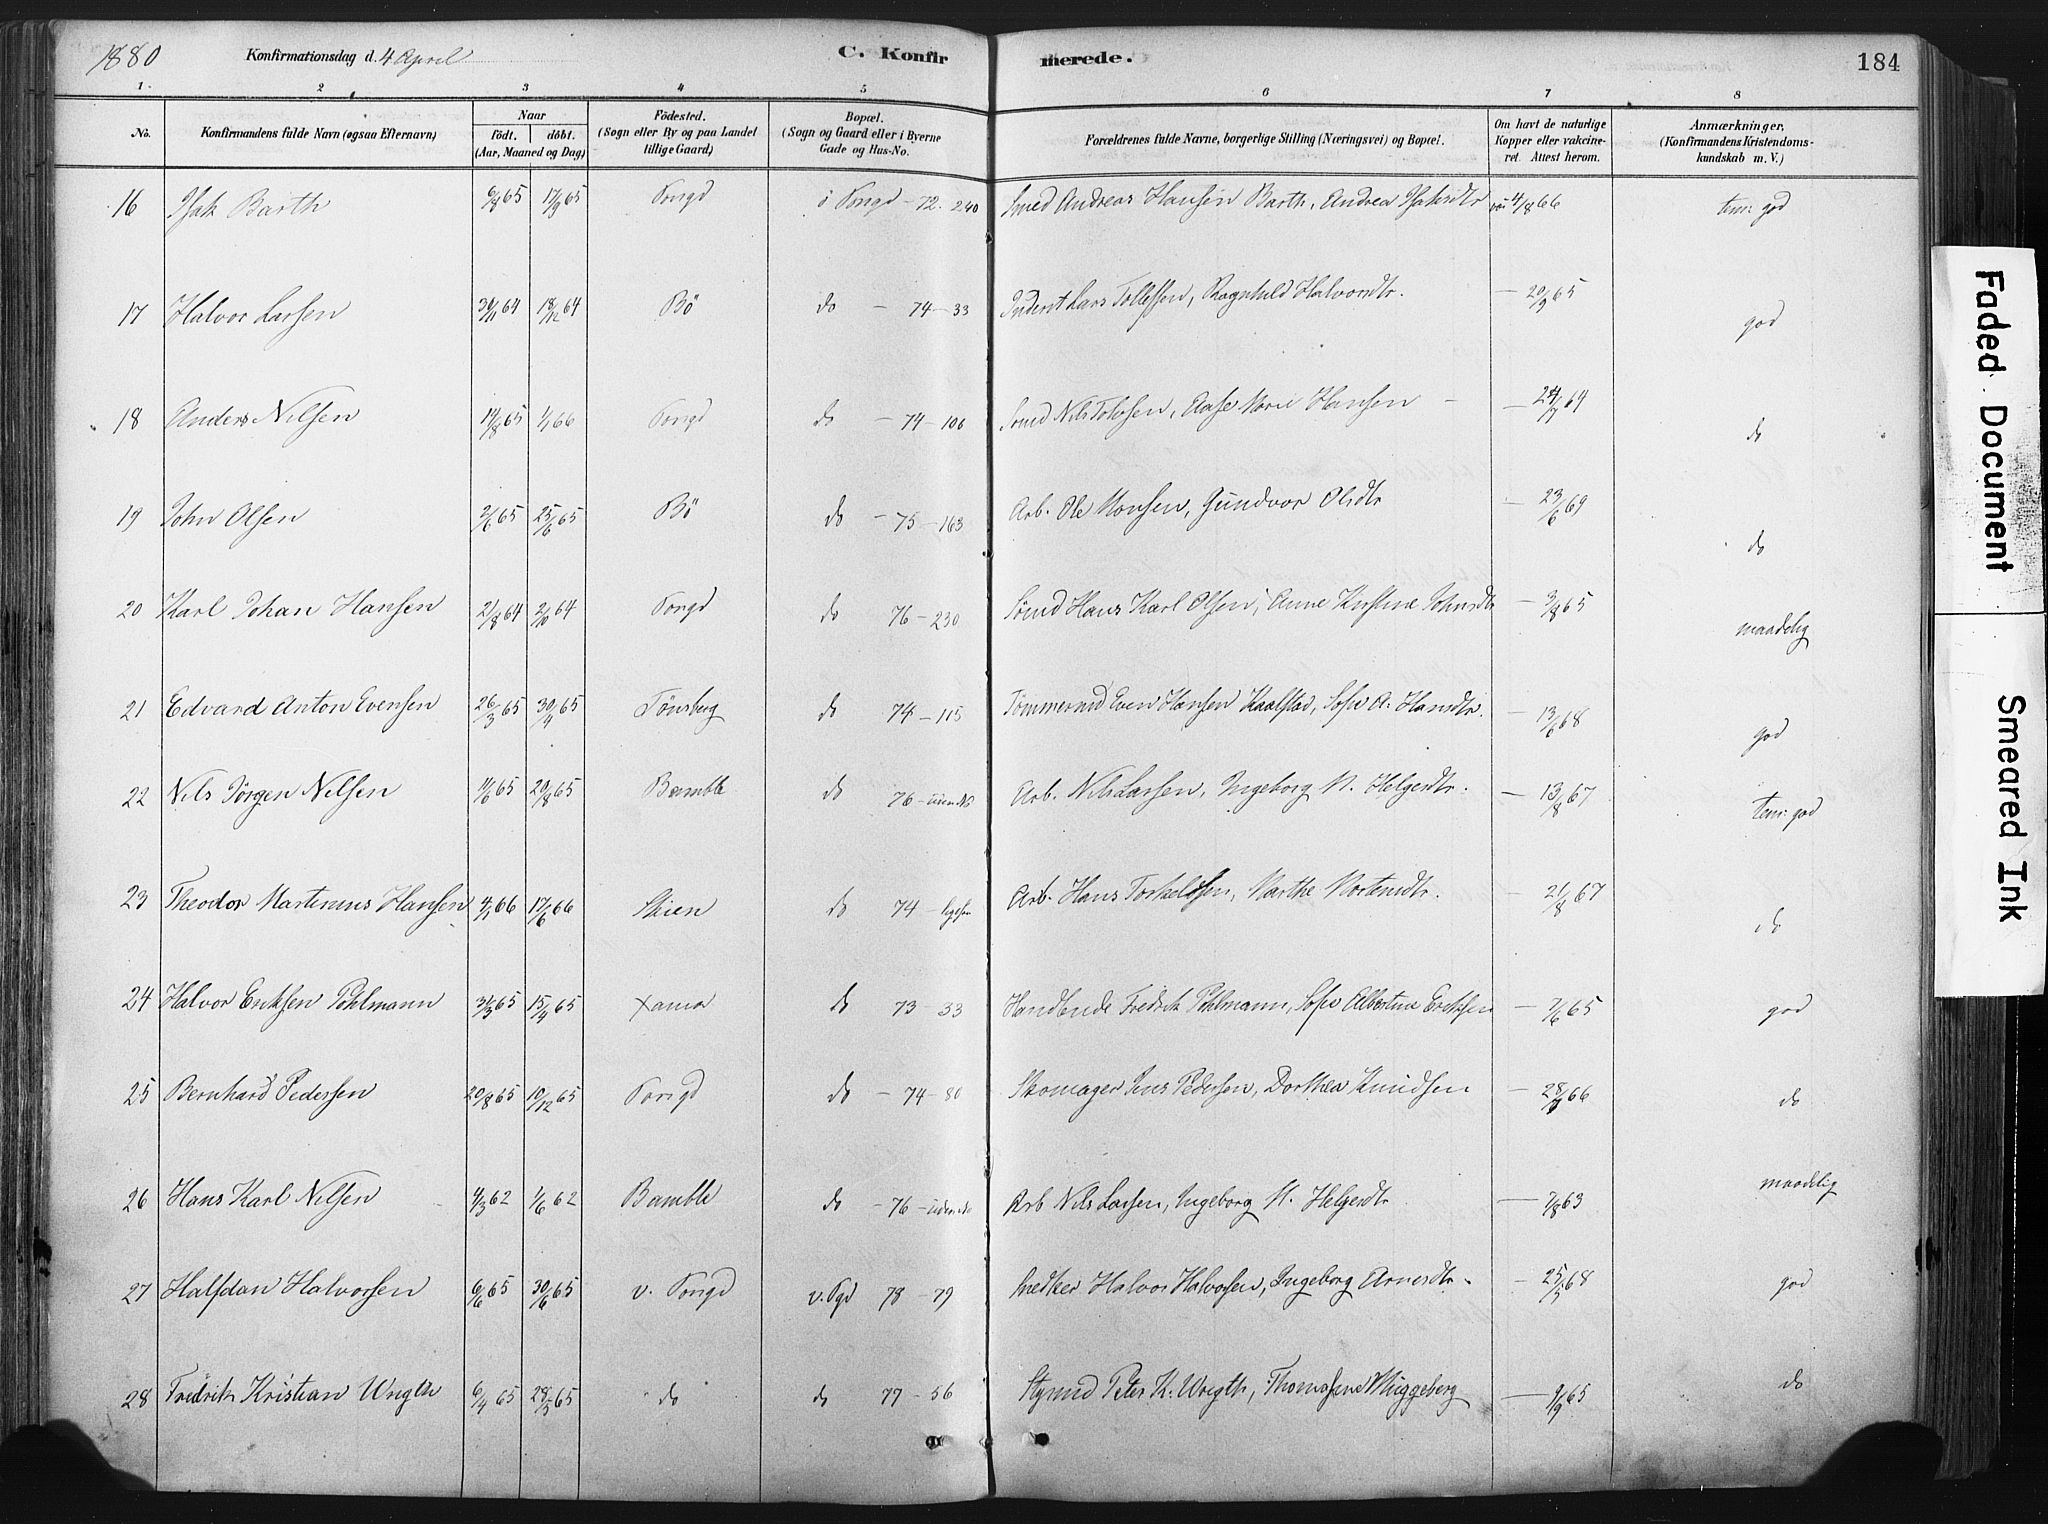 1880 Konfirmationsdag d. 4 April C. Konfirmerede. 184
1 2 3 4 5 6 7 8
No. Konfirmandens fulde Navn (ogsaa Efternavn) Naar født. døbt. (Aar, Maaned og Dag) Fødested. (Sogn eller By og paa Landet tillige Gaard) Bopæl. (Sogn og Gaard eller i Byerne Gade og Hus-No. Forældrenes fulde Navne, borgerlige Stilling (Næringsvei) og Bopæl. Om havt de naturlige Kopper eller vakcineret. Attest herom. Anmærkninger. (Konfirmandens Kristendomskundskab m. V.)
16 Isak Barth 6/8 65 17/9 65 Porsgd ö Porsgd - 72 - 240 Smed Andreas Hansen Barth, Andrea Isaksdtr 4/8 66 tem: god
17 Halvor Larsen 30/11 64 18/12 64 Bö do - 74 - 33 Lars Tollefsen, Ragnhild Halvorsdtr. - 20/9 65 god
18 Anders Nilsen 14/8 65 1/1 66 Porsgd do - 74 - 106 Smed Nils Tolofsen, Aase Marie Hansen - 24/7 64 do
19 John Olsen 2/6 65 25/6 65 Bö do - 75 - 163 Arb. Ole Monsen, Gundvor Olsdtr - 23/6 69 do
20 Karl Johan Hansen 21/8 64 2/10 64 Porsgd do 76 - 230 Sömd Hans Karl Olsen, Anne Kirstine Johnsdtr - 3/8 65 maadelig
21 Edvard Anton Evensen 26/3 65 30/4 65 Tönsberg do 74 - 115 Tömmermd Even Hansen Kaalstad, Sofie A. Hansdtr. - 13/6 68 god
22 Nils Jörgen Nilsen 11/6 65 20/8 65 Bamble do 76 - uden No Arb. Nils Larsen, Ingeborg M. Helgesdtr. - 13/8 67 tem: god
23 Theodor Martinius Hansen 4/1 66 17/6 66 Skien do 74 - Arb. Hans Torkelsen, Marthe Mortensdtr. - 21/8 67 do
24 Halvor Eriksen Pohlmann 31/3 65 15/4 65 Xania do 73 - 33 Handlende Fredrik Pohlmann, Sofie Albertine Eriksen - 7/6 65 god
25 Bernhard Pedersen 20/8 65 10/12 65 Porsgd do - 74 - 80 Skomager Jens Pedersen, Dorthea Knudsen - 28/9 66 do
26 Hans Karl Nilsen 4/3 62 1/6 62 Bamble do - 76 - uden No Arb Nils Larsen, Ingeborg M. Helgesdtr - 7/8 63 maadelig
27 Halfdan Halvorsen 6/6 65 30/6 65 v. Porsgd v. Pgd 78 - 79 Snedker Halvor Halvorsen, Ingeborg Arnesdtr. - 25/5 68 god
28 Fredrik Kristian Wrigth 6/4 65 28/5 65 do do 77 - 56 Styrmd Peter K. Wrigth, Thomasine Muggeberg - 9/9 65 do
Faded Document
Smeared Ink